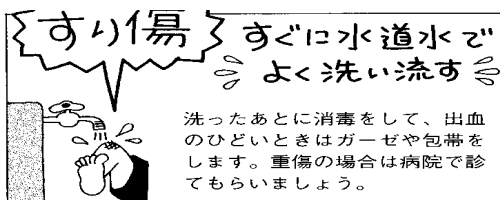 すり傷
すぐに水道水で
よく洗い流す
洗ったあとに消毒をして、出血
のひどいときはガーゼや包帯を
します。重傷の場合は病院で診
てもらいましょう。